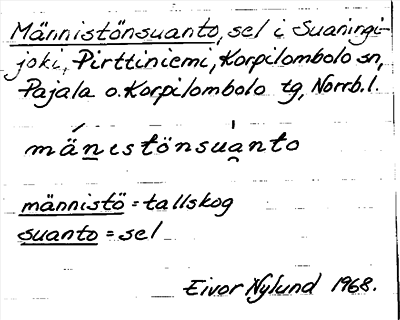 Männistönsuanto, sel i Suaningi-
joki, Pirttiniemi, Korpilombolo sn,
Pajala o. Korpilombolo tg, Norrb.l.
mä́n̲estönsu̍a̯nto
männistö = tallskog
suanto = sel
Eivor Nylund 1968.